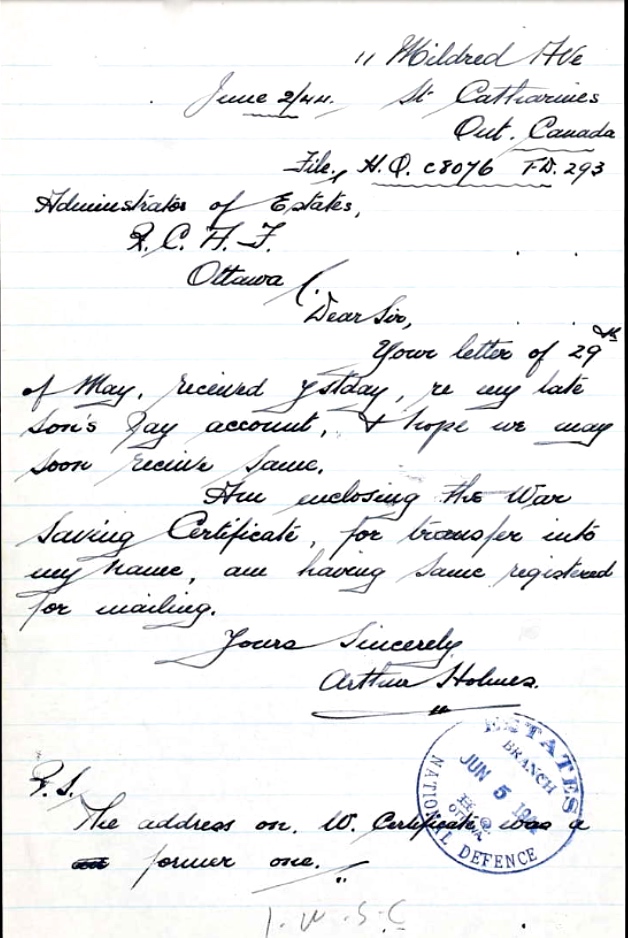 11 Mildred Ave
June 2/44. St Catharines
Ont. Canada
File, H.Q. C8076 FD. 293
Administrator of Estates,
R.C.A.F.
Ottawa
Dear Sir,
Your letter of 29th
of May, received ystday, re my late
Son's Pay account, & hope we may
soon receive same.
Am enclosing the War
Saving Certificate, for transfer into
my name, am having same registered
for mailing.
Yours Sincerely
Arthur Holmes.
ESTATES
BRANCH
JUN 5
H.Q.
OTTAWA
NATIONAL DEFENCE
P.S.
The address on. W. Certificate, was a
former one.
1. W. S. C